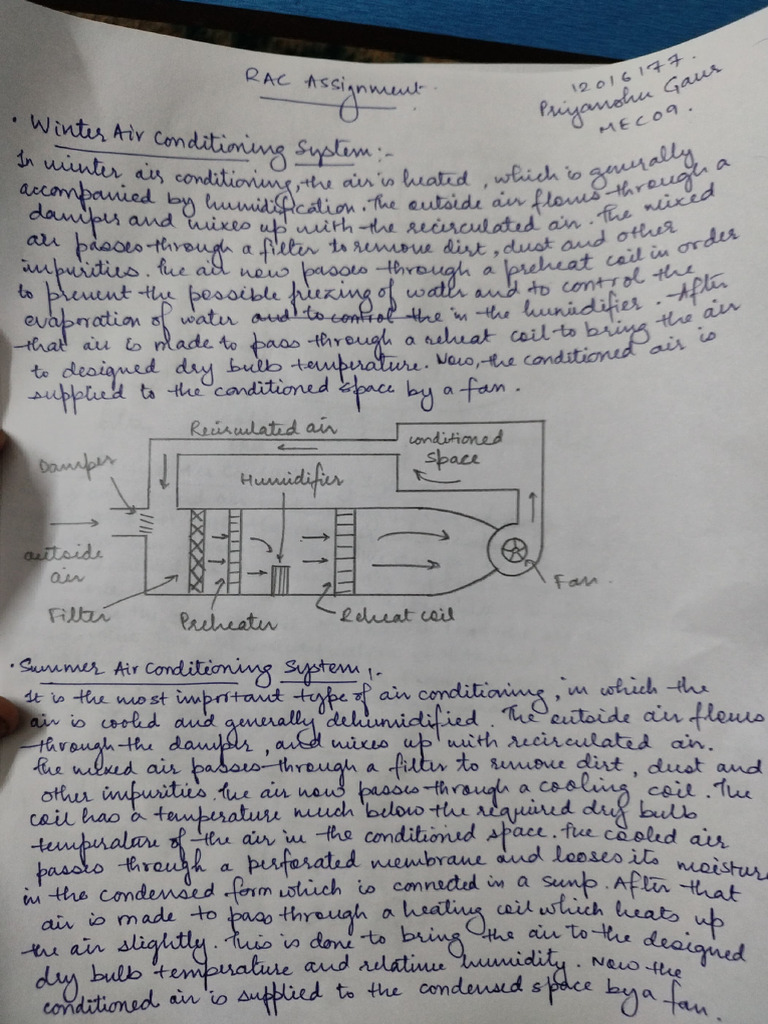 RAC Assignment.
12016177.
Priyanshu Gaur
MEC09.
• Winter Air Conditioning System:-
In winter air conditioning, the air is heated, which is generally
accompanied by humidification. The outside air flows through a
damper and mixes up with the recirculated air. The mixed
air passes through a filter to remove dirt, dust and other
impurities. The air now passes through a preheat coil in order
to prevent the possible freezing of water and to control the
evaporation of water and to control the in the humidifier. After
that air is made to pass through a reheat coil to bring the air
to designed dry bulb temperature. Now, the conditioned air is
supplied to the conditioned space by a fan.
Recirculated air
conditioned
space
Damper
Humidifier
outside
air
Fan.
Filter
Preheater
Reheat coil
• Summer Air Conditioning System:-
It is the most important type of air conditioning, in which the
air is cooled and generally dehumidified. The outside air flows
through the damper, and mixes up with recirculated air.
The mixed air passes through a filter to remove dirt, dust and
other impurities. The air now passes through a cooling coil. The
coil has a temperature much below the required dry bulb
temperature of the air in the conditioned space. The cooled air
passes through a perforated membrane and looses its moisture
in the condensed form which is connected in a sump. After that
air is made to pass through a heating coil which heats up
the air slightly. This is done to bring the air to the designed
dry bulb temperature and relative humidity. Now the
conditioned air is supplied to the condensed space by a fan.